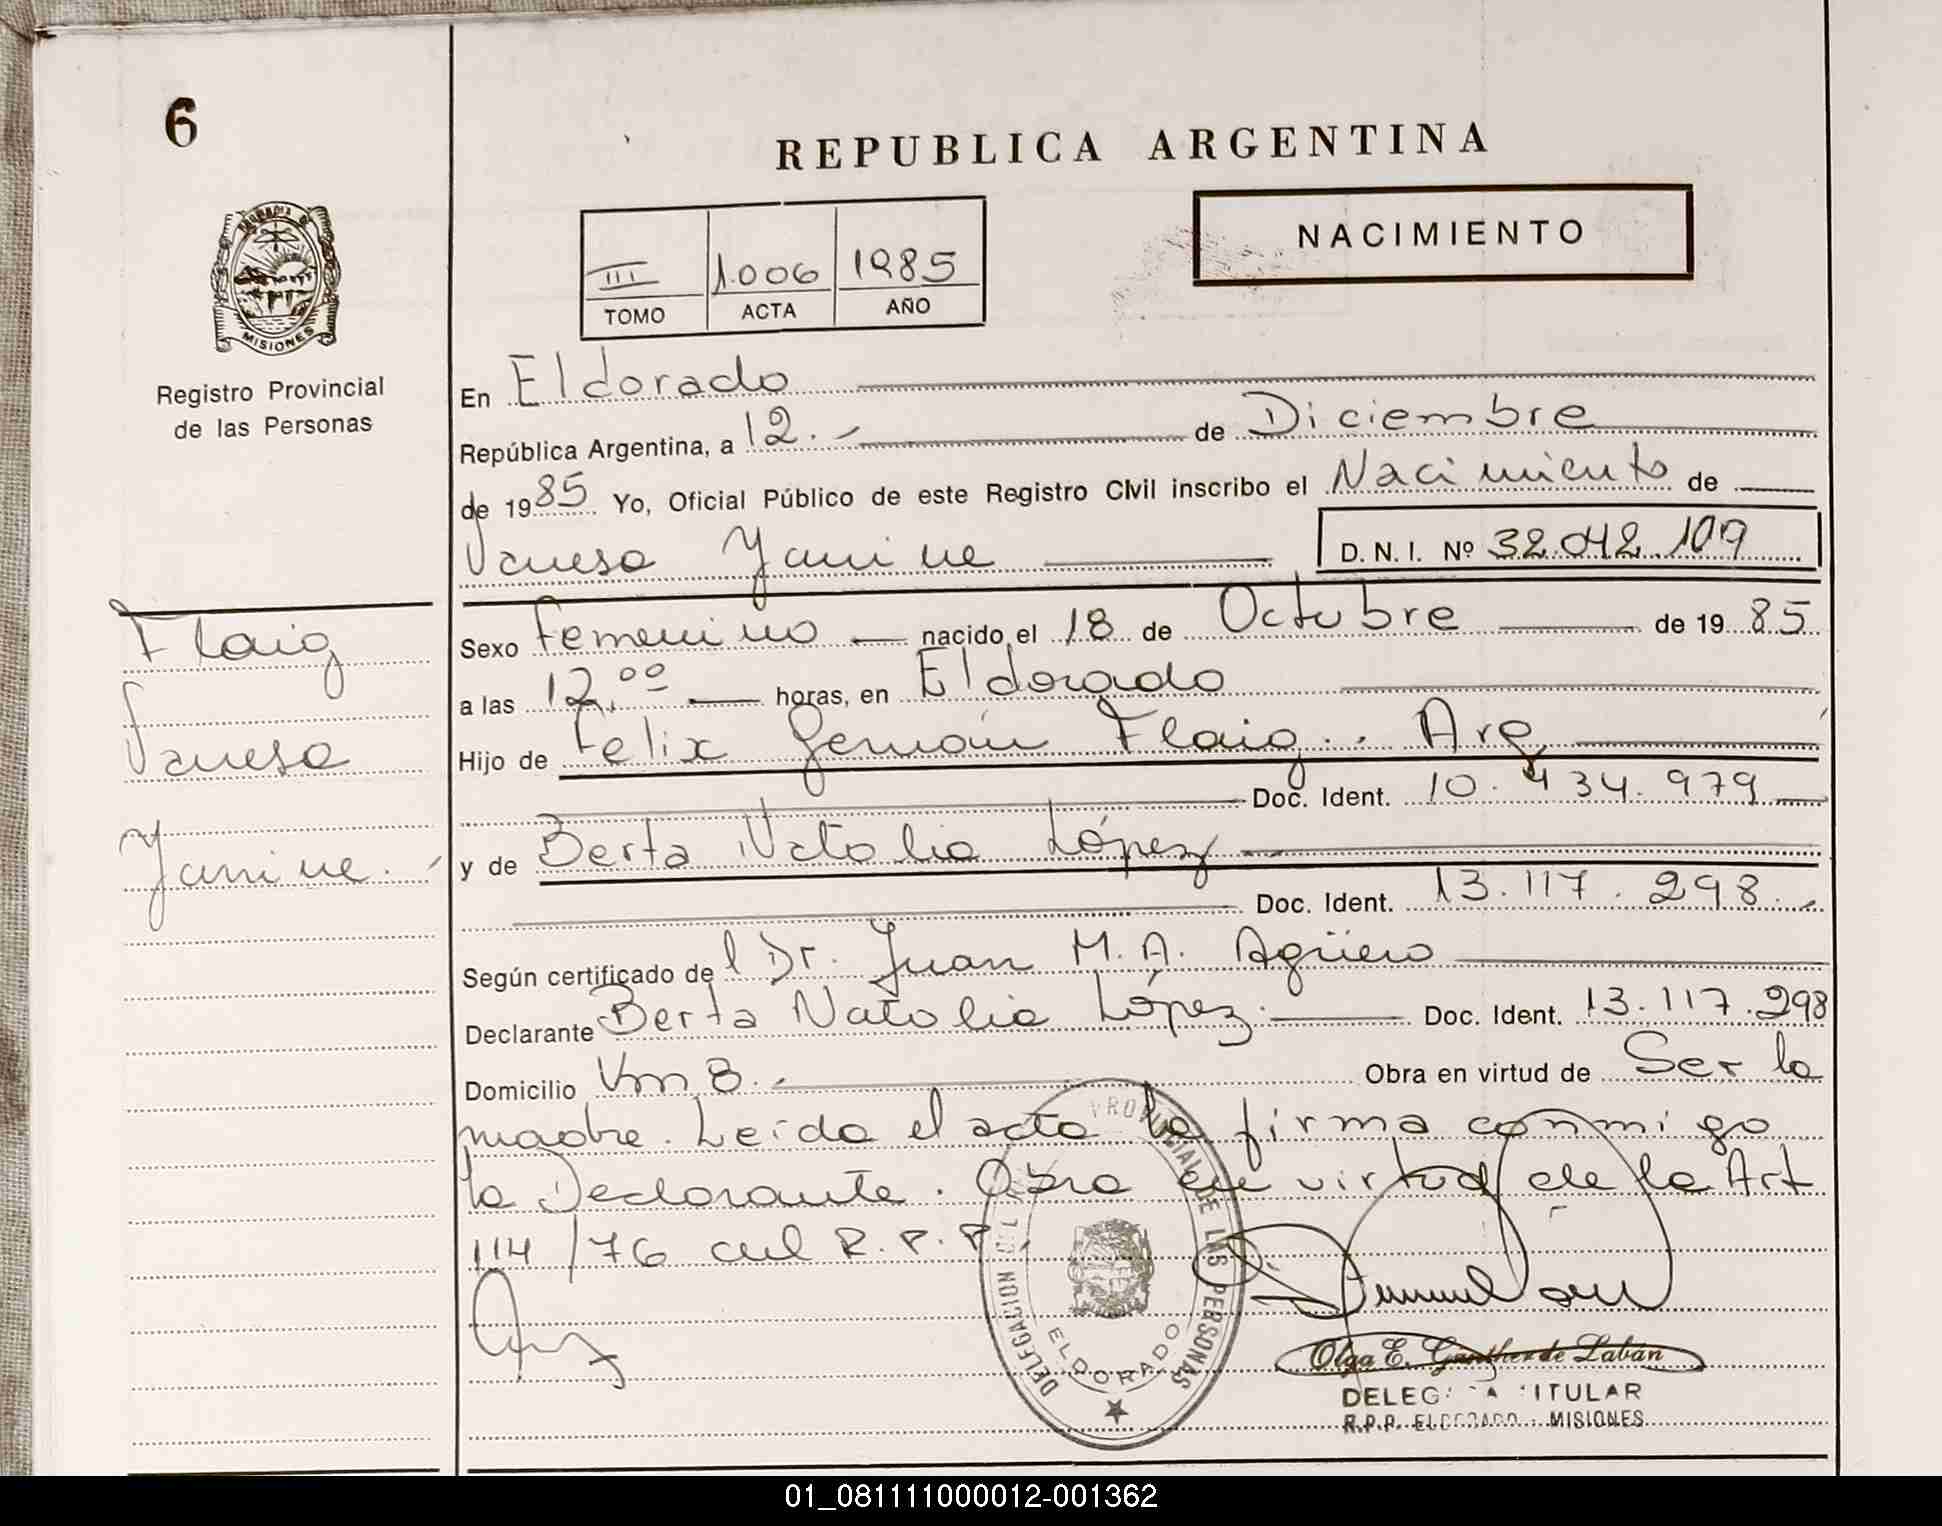 6
REPUBLICA ARGENTINA
NACIMIENTO
III 1.006 1985
TOMO ACTA AÑO
MISIONES
Registro Provincial
de las Personas
En Eldorado
República Argentina, a 12.- de Diciembre
de 1985 Yo, Oficial Público de este Registro Civil inscribo el Nacimiento de
Vanesa Yanine D. N. I. Nº 32.042.109
Flaig
Vanesa
Yanine.
Sexo Femenino nacido el 18 de Octubre de 1985
a las 12,00 horas, en Eldorado
Hijo de Felix Germán Flaig.. Arg
Doc. Ident. 10.434.979
y de Berta Natalia López
Doc. Ident. 13.117.298.
Según certificado del Dr. Juan M. A. Agüero
Declarante Berta Natalia López. Doc. Ident. 13.117.298
Domicilio Km 8. Obra en virtud de Ser la
madre. Leída el acta la firma conmigo
la Declarante. Obra en virtud de la Art
114/76 del R.P.P.
DELEGACION PROVINCIAL DE LAS PERSONAS
ELDORADO
Olga E. Gunther de Labán
DELEGADA TITULAR
R.P.P. ELDORADO - MISIONES
01_081111000012-001362